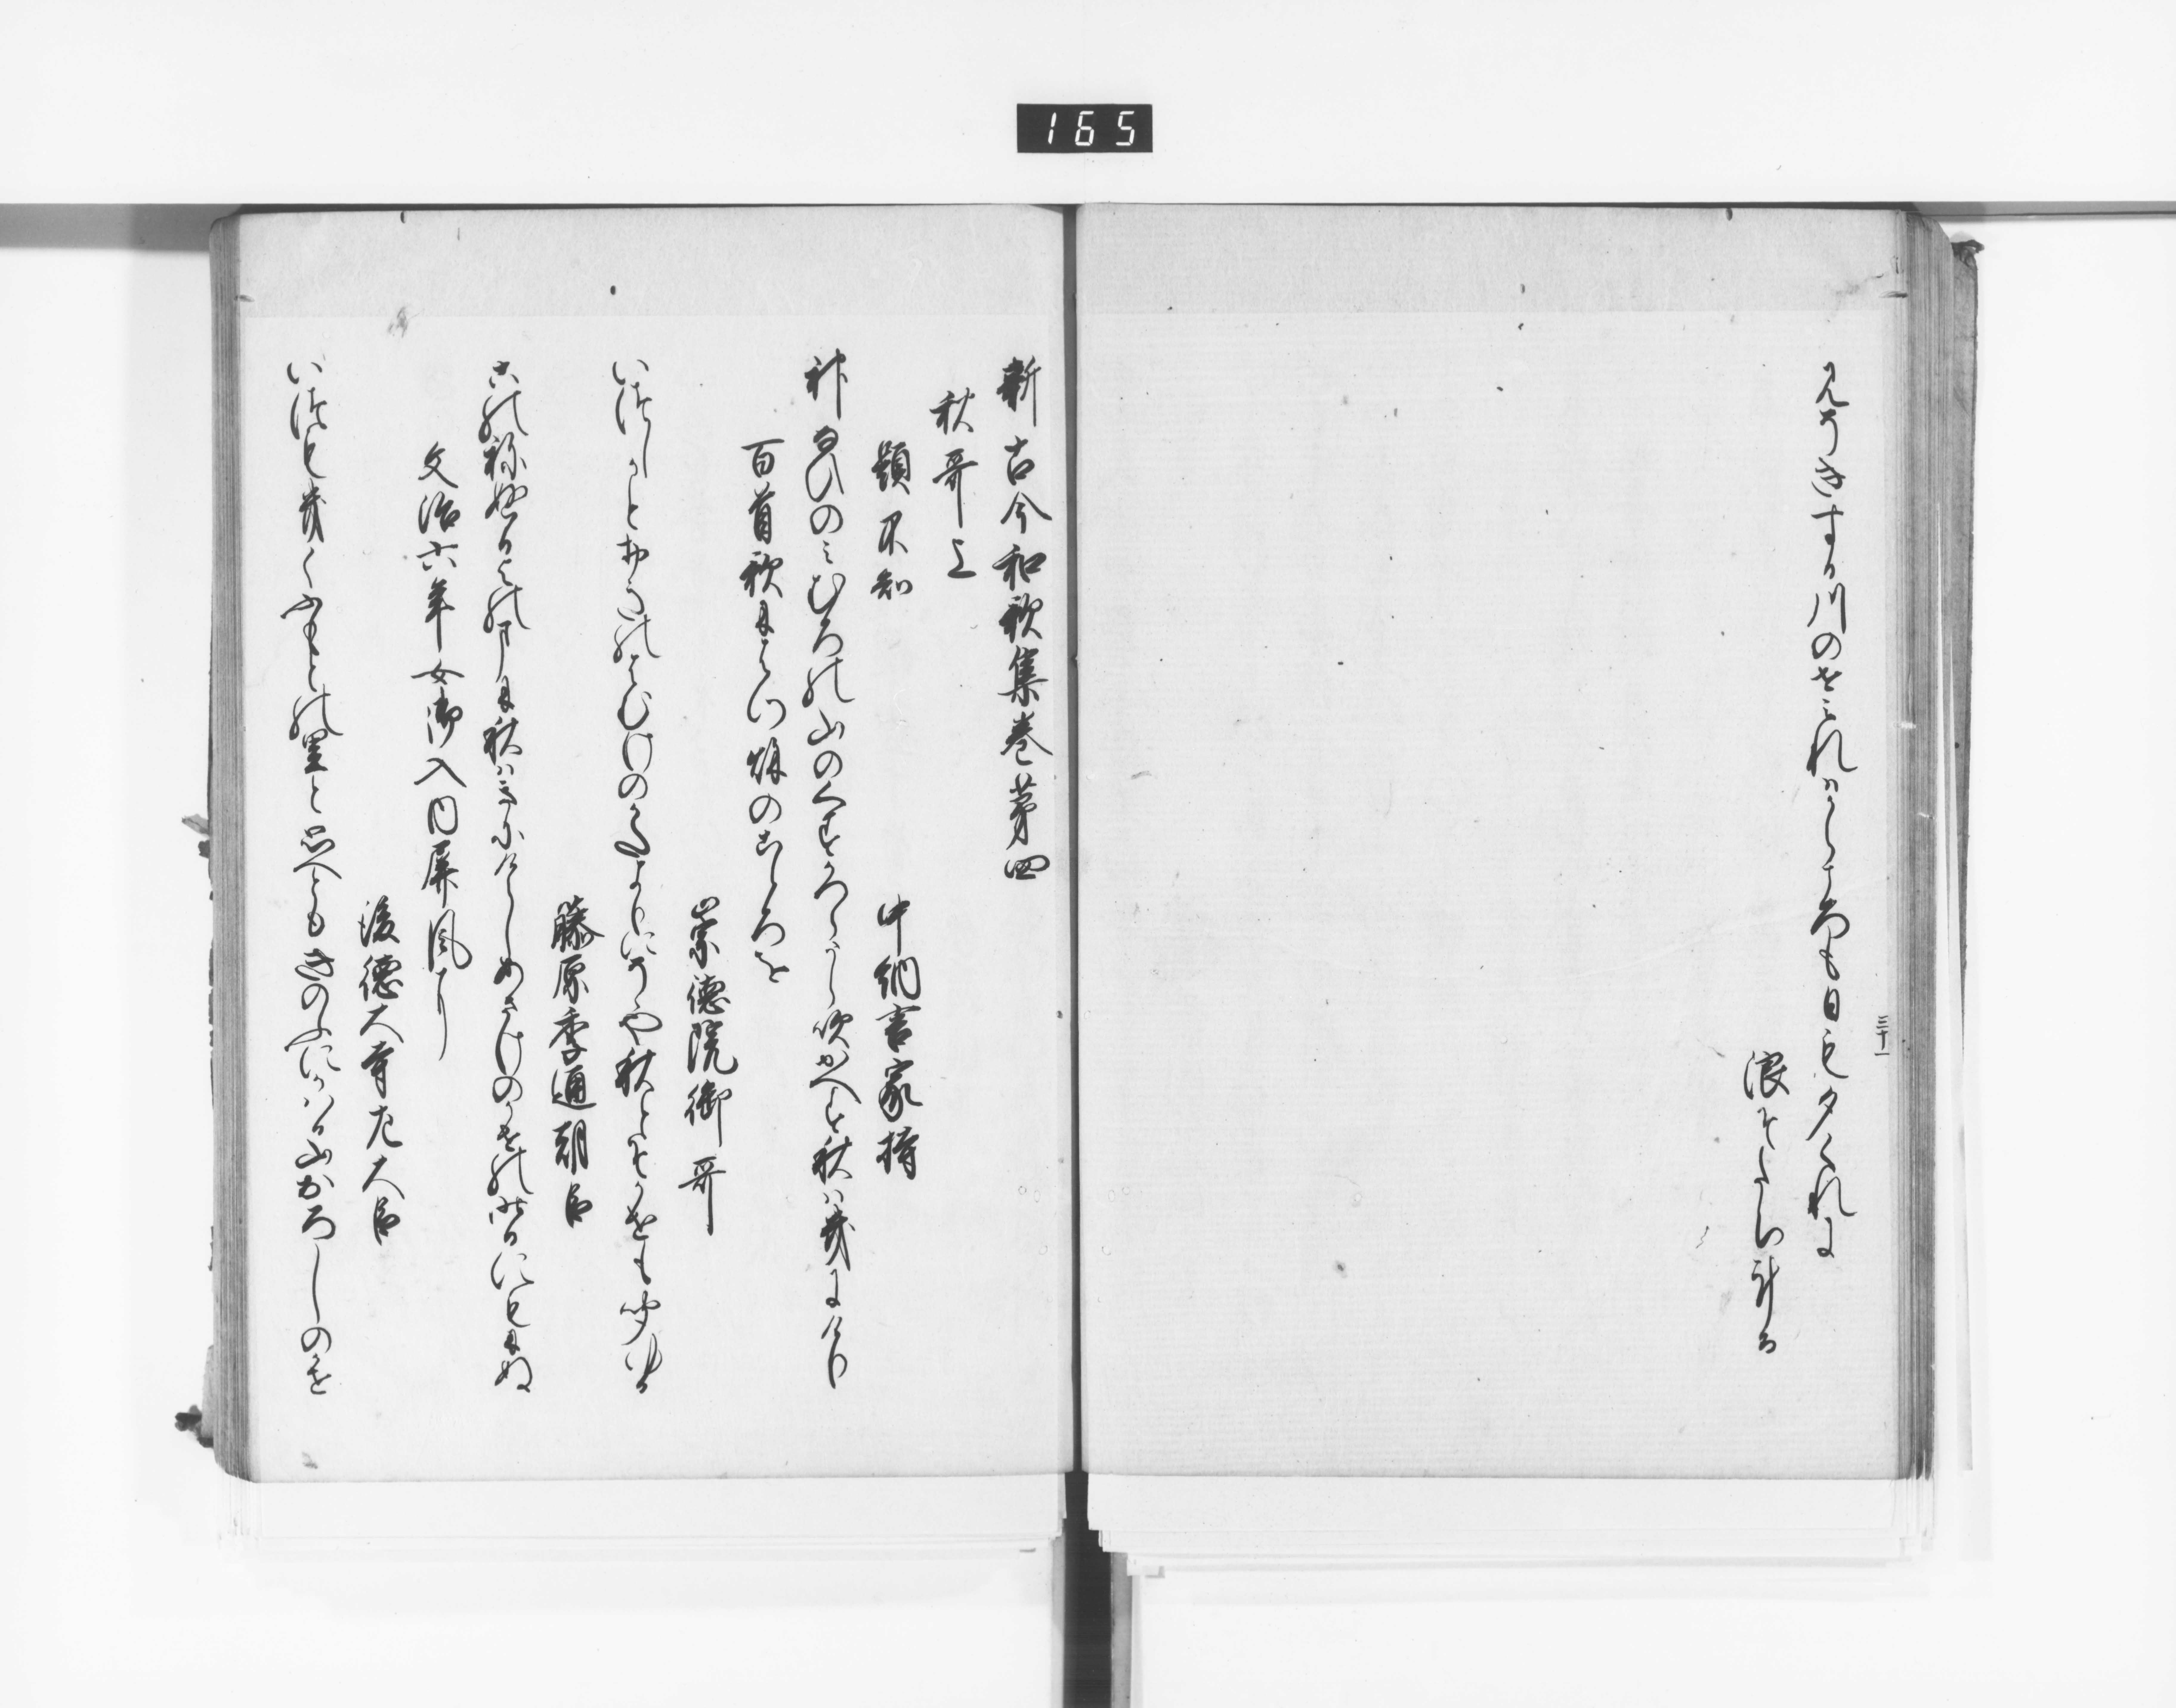 165
三十一
みそきする川のせみれはからころも日も夕くれに
浪そたち計る
新古今和歌集巻第四
秋哥上
題不知
中納言家持
神なひのみむろの山のくすかつらうら吹かへす秋は来にけり
百首歌にはつ秋のこゝろを
崇徳院御哥
いつしかとおきのはむけのかたよりにそゝや秋とそかせも聞ゆる
藤原季通朝臣
このねぬるよのまに秋はきにけらしあさけのかせの昨日にもにぬ
文治六年女御入内屏風に
後徳大寺左大臣
いつも聞くふもとの里と思へともきのふにかはる山おろしのかせ